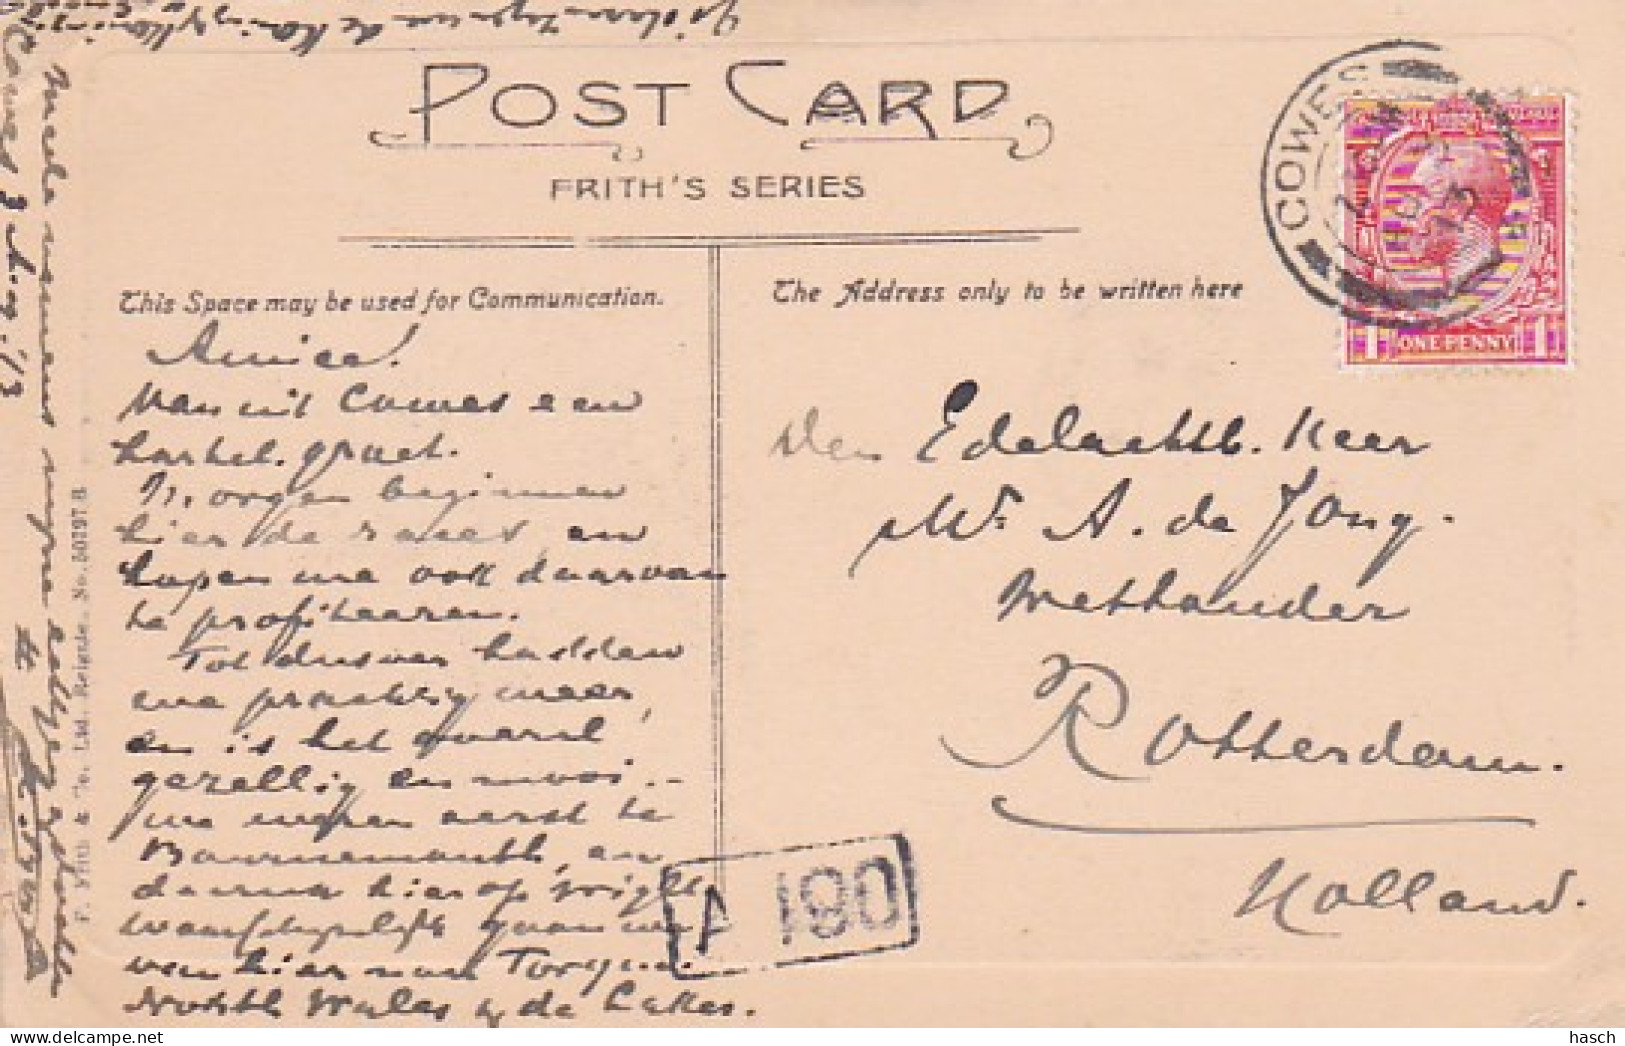 POST CARD
FRITH'S SERIES
This Space may be used for Communication.
The Address only to be written here
COWES
13
ONE PENNY
1 1
Amice!
Vanuit Cowes een
hartel. groet.
Morgen beginnen
hier de races, en
hopen we ook daarvan
te profiteeren.
Tot dusver hadden
we prachtig weer,
en is het overal
gezellig en mooi. -
we waren eerst te
Bournemouth, en
daarna hier op Wight
waarschijnlijk gaan we
van hier naar
North Wales & de Lakes.
Den Edelachtb. Heer
Mr. A. de Jong.
Wethouder
Rotterdam.
Holland.
180
Cowes 3 Aug. '13
Vele namens mijne
F. Frith & Co. Ltd. Reigate. No. 50197.B.
hasch